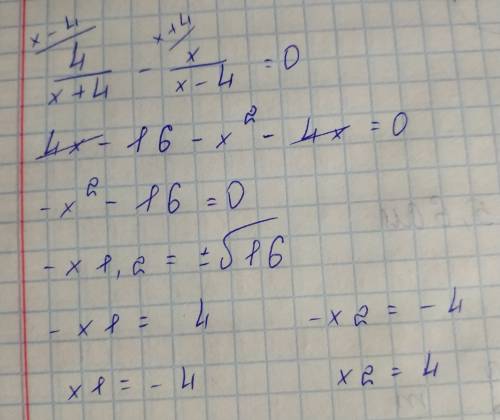 x - 4 x + 4
4/(x + 4) - x/(x - 4) = 0
4x - 16 - x² - 4x = 0
- x² - 16 = 0
- x 1,2 = ±√16
- x 1 = 4 - x 2 = - 4
x 1 = - 4 x 2 = 4